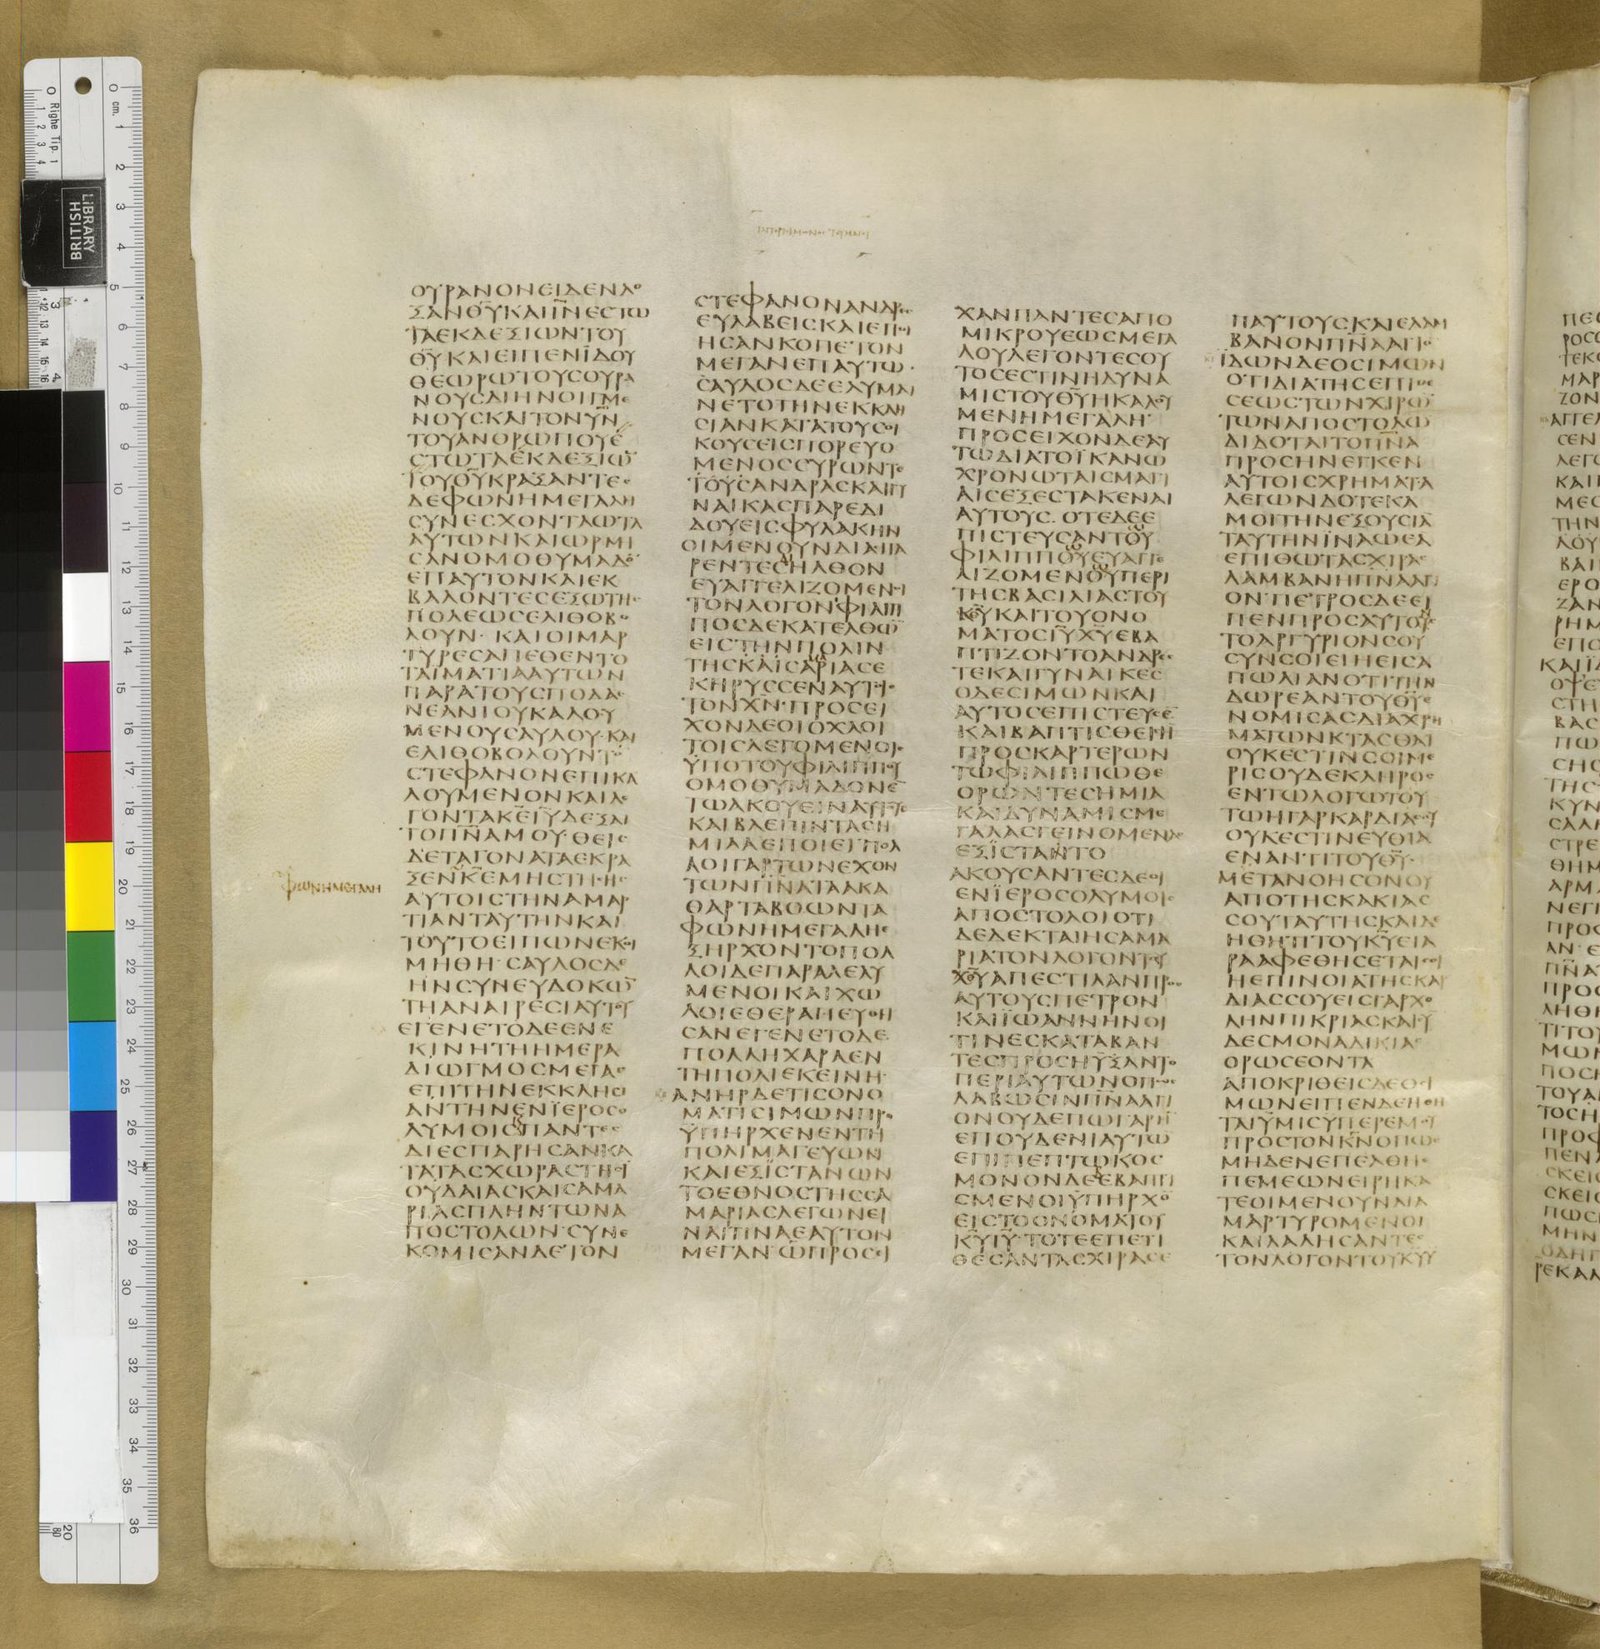 ΟΥΡΑΝΟΝΕΙΔΕΝΔΟ
ΞΑΝΘΥΚΑΙΙΝΕΣΤΩ
ΤΑΕΚΔΕΞΙΩΝΤΟΥ
ΘΥΚΑΙΕΙΠΕΝΙΔΟΥ
ΘΕΩΡΩΤΟΥΣΟΥΡΑ
ΝΟΥΣΔΙΗΝΟΙΓΜΕ
ΝΟΥΣΚΑΙΤΟΝΥΝ
ΤΟΥΑΝΘΡΩΠΟΥΕ
ΣΤΩΤΑΕΚΔΕΞΙΩ
ΤΟΥΘΥΚΡΑΞΑΝΤΕΣ
ΔΕΦΩΝΗΜΕΓΑΛΗ
ΣΥΝΕΣΧΟΝΤΑΩΤΑ
ΑΥΤΩΝΚΑΙΩΡΜΗ
ΣΑΝΟΜΟΘΥΜΑΔΟ
ΕΠΑΥΤΟΝΚΑΙΕΚ
ΒΑΛΟΝΤΕΣΕΞΩΤΗΣ
ΠΟΛΕΩΣΕΛΙΘΟΒΟ
ΛΟΥΝ·ΚΑΙΟΙΜΑΡ
ΤΥΡΕΣΑΠΕΘΕΝΤΟ
ΤΑΙΜΑΤΙΑΑΥΤΩΝ
ΠΑΡΑΤΟΥΣΠΟΔΑΣ
ΝΕΑΝΙΟΥΚΑΛΟΥ
ΜΕΝΟΥΣΑΥΛΟΥ·ΚΑΙ
ΕΛΙΘΟΒΟΛΟΥΝΤΟ
ΣΤΕΦΑΝΟΝΕΠΙΚΑ
ΛΟΥΜΕΝΟΝΚΑΙΛΕ
ΓΟΝΤΑΚΕΙΥΔΕΞΑΙ
ΤΟΠΝΑΜΟΥ·ΘΕΙΣ
ΔΕΤΑΓΟΝΑΤΑΕΚΡΑ
ΞΕΝΚΕΜΗΣΤΗΣΗΣ
ΦΩΝΗΜΕΓΑΛΗ
ΑΥΤΟΙΣΤΗΝΑΜΑΡ
ΤΙΑΝΤΑΥΤΗΝΚΑΙ
ΤΟΥΤΟΕΙΠΩΝΕΚΟΙ
ΜΗΘΗ·ΣΑΥΛΟΣΔΕ
ΗΝΣΥΝΕΥΔΟΚΩ
ΤΗΑΝΑΙΡΕΣΙΑΥΤΟΥ
ΕΓΕΝΕΤΟΔΕΕΝΕ
ΚΙΝΗΤΗΗΜΕΡΑ
ΔΙΩΓΜΟΣΜΕΓΑΣ
ΕΠΙΤΗΝΕΚΚΛΗΣΙ
ΑΝΤΗΝΕΝΪΕΡΟΣΟ
ΛΥΜΟΙΣΠΑΝΤΕΣ
ΔΙΕΣΠΑΡΗΣΑΝΚΑ
ΤΑΤΑΣΧΩΡΑΣΤΗΣΪ
ΟΥΔΑΙΑΣΚΑΙΣΑΜΑ
ΡΙΑΣΠΛΗΝΤΩΝΑ
ΠΟΣΤΟΛΩΝ·ΣΥΝΕ
ΚΟΜΙΣΑΝΔΕΤΟΝ
ΣΤΕΦΑΝΟΝΑΝΔΡΕΣ
ΕΥΛΑΒΕΙΣΚΑΙΕΠΟΙ
ΗΣΑΝΚΟΠΕΤΟΝ
ΜΕΓΑΝΕΠΑΥΤΩ·
ΣΑΥΛΟΣΔΕΕΛΥΜΑΙ
ΝΕΤΟΤΗΝΕΚΚΛΗ
ΣΙΑΝΚΑΤΑΤΟΥΣΟΙ
ΚΟΥΣΕΙΣΠΟΡΕΥΟ
ΜΕΝΟΣΣΥΡΩΝΤΕ
ΤΟΥΣΑΝΔΡΑΣΚΑΙΓΥ
ΝΑΙΚΑΣΠΑΡΕΔΙ
ΔΟΥΕΙΣΦΥΛΑΚΗΝ
ΟΙΜΕΝΟΥΝΔΙΑΣΠΑ
ΡΕΝΤΕΣΗΛΘΟΝ
ΕΥΑΓΓΕΛΙΖΟΜΕΝΟΙ
ΤΟΝΛΟΓΟΝ·ΦΙΛΙΠ
ΠΟΣΔΕΚΑΤΕΛΘΩ
ΕΙΣΤΗΝΠΟΛΙΝ
ΤΗΣΚΑΙΣΑΡΙΑΣΕ
ΚΗΡΥΣΣΕΝΑΥΤΟΙΣ
ΤΟΝΧΝ·ΠΡΟΣΕΙ
ΧΟΝΔΕΟΙΟΧΛΟΙ
ΤΟΙΣΛΕΓΟΜΕΝΟΙΣ
ΫΠΟΤΟΥΦΙΛΙΠΠΟΥ
ΟΜΟΘΥΜΑΔΟΝΕ
ΤΩΑΚΟΥΕΙΝΑΥΤΟΥΣ
ΚΑΙΒΛΕΠΙΝΤΑΣΗ
ΜΙΑΑΕΠΟΙΕΙΠΟΛ
ΛΟΙΓΑΡΤΩΝΕΧΟΝ
ΤΩΝΠΝΑΤΑΑΚΑ
ΘΑΡΤΑΒΟΩΝΤΑ
ΦΩΝΗΜΕΓΑΛΗΕ
ΞΗΡΧΟΝΤΟΠΟΛ
ΛΟΙΔΕΠΑΡΑΛΕΛΥ
ΜΕΝΟΙΚΑΙΧΩ
ΛΟΙΕΘΕΡΑΠΕΥΘΗ
ΣΑΝΕΓΕΝΕΤΟΔΕ
ΠΟΛΛΗΧΑΡΑΕΝ
ΤΗΠΟΛΙΕΚΕΙΝΗ·
ΑΝΗΡΔΕΤΙΣΟΝΟ
ΜΑΤΙΣΙΜΩΝΠΡΟ
ΫΠΗΡΧΕΝΕΝΤΗ
ΠΟΛΙΜΑΓΕΥΩΝ
ΚΑΙΕΞΙΣΤΑΝΩΝ
ΤΟΕΘΝΟΣΤΗΣΣΑ
ΜΑΡΙΑΣΛΕΓΩΝΕΙ
ΝΑΙΤΙΝΑΕΑΥΤΟΝ
ΜΕΓΑΝ·ΩΠΡΟΣΕΙ
ΧΑΝΠΑΝΤΕΣΑΠΟ
ΜΙΚΡΟΥΕΩΣΜΕΓΑ
ΛΟΥΛΕΓΟΝΤΕΣΟΥ
ΤΟΣΕΣΤΙΝΗΔΥΝΑ
ΜΙΣΤΟΥΘΥΗΚΑΛΟΥ
ΜΕΝΗΜΕΓΑΛΗ
ΠΡΟΣΕΙΧΟΝΔΕΑΥ
ΤΩΔΙΑΤΟΪΚΑΝΩ
ΧΡΟΝΩΤΑΙΣΜΑΓΙ
ΑΙΣΕΞΕΣΤΑΚΕΝΑΙ
ΑΥΤΟΥΣ·ΟΤΕΔΕΕ
ΠΙΣΤΕΥΣΑΝΤΟΥ
ΦΙΛΙΠΠΟΥΕΥΑΓΓΕ
ΛΙΖΟΜΕΝΟΥΠΕΡΙ
ΤΗΣΒΑΣΙΛΙΑΣΤΟΥ
ΚΥΚΑΙΤΟΥΟΝΟ
ΜΑΤΟΣΙΥΧΥΕΒΑ
ΠΤΙΖΟΝΤΟΑΝΔΡΕΣ
ΤΕΚΑΙΓΥΝΑΙΚΕΣ
ΟΔΕΣΙΜΩΝΚΑΙ
ΑΥΤΟΣΕΠΙΣΤΕΥΣΕ
ΚΑΙΒΑΠΤΙΣΘΕΙΣΗ
ΠΡΟΣΚΑΡΤΕΡΩΝ
ΤΩΦΙΛΙΠΠΩΘΕ
ΟΡΩΝΤΕΣΗΜΙΑ
ΚΑΙΔΥΝΑΜΙΣΜΕ
ΓΑΛΑΣΓΕΙΝΟΜΕΝΑΣ
ΕΞΙΣΤΑΝΤΟ
ΑΚΟΥΣΑΝΤΕΣΔΕΟΙ
ΕΝΪΕΡΟΣΟΛΥΜΟΙΣ
ΑΠΟΣΤΟΛΟΙΟΤΙ
ΔΕΔΕΚΤΑΙΗΣΑΜΑ
ΡΙΑΤΟΝΛΟΓΟΝΤΟΥ
ΧΥΑΠΕΣΤΙΛΑΝΠΡΟΣ
ΑΥΤΟΥΣΠΕΤΡΟΝ
ΚΑΙΪΩΑΝΝΗΝΟΙ
ΤΙΝΕΣΚΑΤΑΒΑΝ
ΤΕΣΠΡΟΣΗΥΞΑΝΤΟ
ΠΕΡΙΑΥΤΩΝΟΠΩΣ
ΛΑΒΩΣΙΝΠΝΑΑΓΙ
ΟΝΟΥΔΕΠΩΓΑΡΗ
ΕΠΟΥΔΕΝΙΑΥΤΩ
ΕΠΙΠΕΠΤΩΚΟΣ
ΜΟΝΟΝΔΕΕΒΑΠΤΙ
ΣΜΕΝΟΙΫΠΗΡΧΟ
ΕΙΣΤΟΟΝΟΜΑΤΟΥ
ΚΥΙΥ·ΤΟΤΕΕΠΕΤΙ
ΘΕΣΑΝΤΑΣΧΙΡΑΣΕ
ΠΑΥΤΟΥΣΚΑΙΕΛΑΜ
ΒΑΝΟΝΠΝΑΑΓΙΟ
ΪΔΩΝΔΕΟΣΙΜΩΝ
ΟΤΙΔΙΑΤΗΣΕΠΙΘΕ
ΣΕΩΣΤΩΝΧΙΡΩ
ΤΩΝΑΠΟΣΤΟΛΩ
ΔΙΔΟΤΑΙΤΟΠΝΑ
ΠΡΟΣΗΝΕΓΚΕΝ
ΑΥΤΟΙΣΧΡΗΜΑΤΑ
ΛΕΓΩΝΔΟΤΕΚΑ
ΜΟΙΤΗΝΕΞΟΥΣΙΑ
ΤΑΥΤΗΝΪΝΑΩΕΑ
ΕΠΙΘΩΤΑΣΧΙΡΑΣ
ΛΑΜΒΑΝΗΠΝΑΑΓΙ
ΟΝ·ΠΕΤΡΟΣΔΕΕΙ
ΠΕΝΠΡΟΣΑΥΤΟΥ
ΤΟΑΡΓΥΡΙΟΝΣΟΥ
ΣΥΝΣΟΙΕΙΗΕΙΣΑ
ΠΩΛΙΑΝΟΤΙΤΗΝ
ΔΩΡΕΑΝΤΟΥΘΥΕ
ΝΟΜΙΣΑΣΔΙΑΧΡΗ
ΜΑΤΩΝΚΤΑΣΘΑΙ
ΟΥΚΕΣΤΙΝΣΟΙΜΕ
ΡΙΣΟΥΔΕΚΛΗΡΟΣ
ΕΝΤΩΛΟΓΩΤΟΥ
ΤΩΗΓΑΡΚΑΡΔΙΑΣΟΥ
ΟΥΚΕΣΤΙΝΕΥΘΙΑ
ΕΝΑΝΤΙΤΟΥΘΥ·
ΜΕΤΑΝΟΗΣΟΝΟΥ
ΑΠΟΤΗΣΚΑΚΙΑΣ
ΣΟΥΤΑΥΤΗΣΚΑΙΔΕ
ΗΘΗΤΙΤΟΥΚΥΕΙΑ
ΡΑΑΦΕΘΗΣΕΤΑΙΣΟΙ
ΗΕΠΙΝΟΙΑΤΗΣΚΑΡ
ΔΙΑΣΣΟΥΕΙΣΓΑΡΧΟ
ΛΗΝΠΙΚΡΙΑΣΚΑΙΣΥ
ΔΕΣΜΟΝΑΔΙΚΙΑΣ
ΟΡΩΣΕΟΝΤΑ
ΑΠΟΚΡΙΘΕΙΣΔΕΟΣΙ
ΜΩΝΕΙΠΕΝΔΕΗΘΗ
ΤΑΙΥΜΙΣΥΠΕΡΕΜΟΥ
ΠΡΟΣΤΟΝΚΝΟΠΩΣ
ΜΗΔΕΝΕΠΕΛΘΗΕ
ΠΕΜΕΩΝΕΙΡΗΚΑ
ΤΕΟΙΜΕΝΟΥΝΔΙΑ
ΜΑΡΤΥΡΟΜΕΝΟΙ
ΚΑΙΛΑΛΗΣΑΝΤΕΣ
ΤΟΝΛΟΓΟΝΤΟΥΚΥΫ
LIBRARY
BRITISH